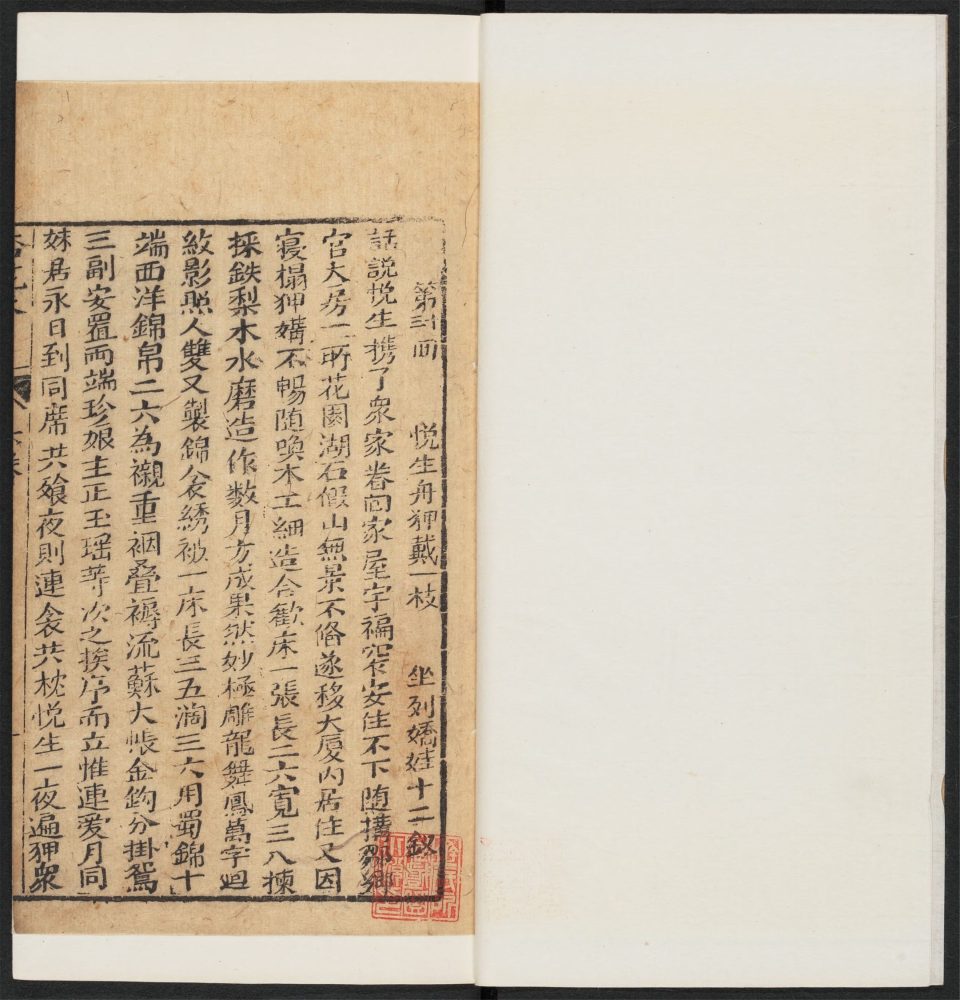 第三十回　悅生舟狎戴一枝　坐列嬌娃十二釵
話說悅生携了衆家眷回家屋宇褊窄安住不下随搆鄒鄉
官大房一所花園湖石假山無景不俻遂移大厦內居住又因
寝榻狎媾不暢随喚木工細造合歡床一張長二六寬三八揀
採鉄梨木水磨造作数月方成果然妙極雕龍舞鳳萬字廻
紋影照人雙又製錦衾綉被一床長三五濶三六用蜀錦十
端西洋錦帛二六為襯重裀叠褥流蘇大帳金鈎分掛鴛
三副安置両端珍娘主正玉瑶等次之挨序而立惟連愛月同
妹居永日到同席共飱夜則連衾共枕悅生一夜遍狎衆